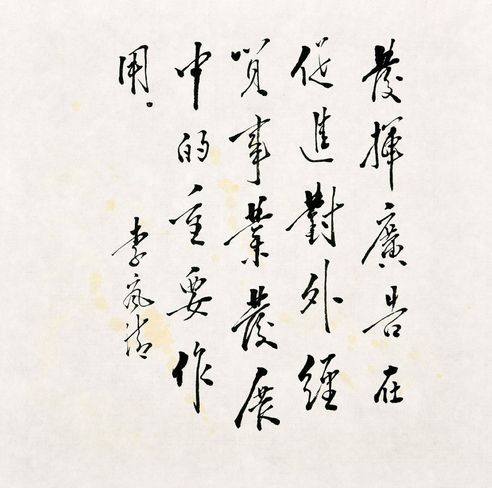 發揮廣告在
促進對外經
貿事業發展
中的重要作
用。
李嵐清